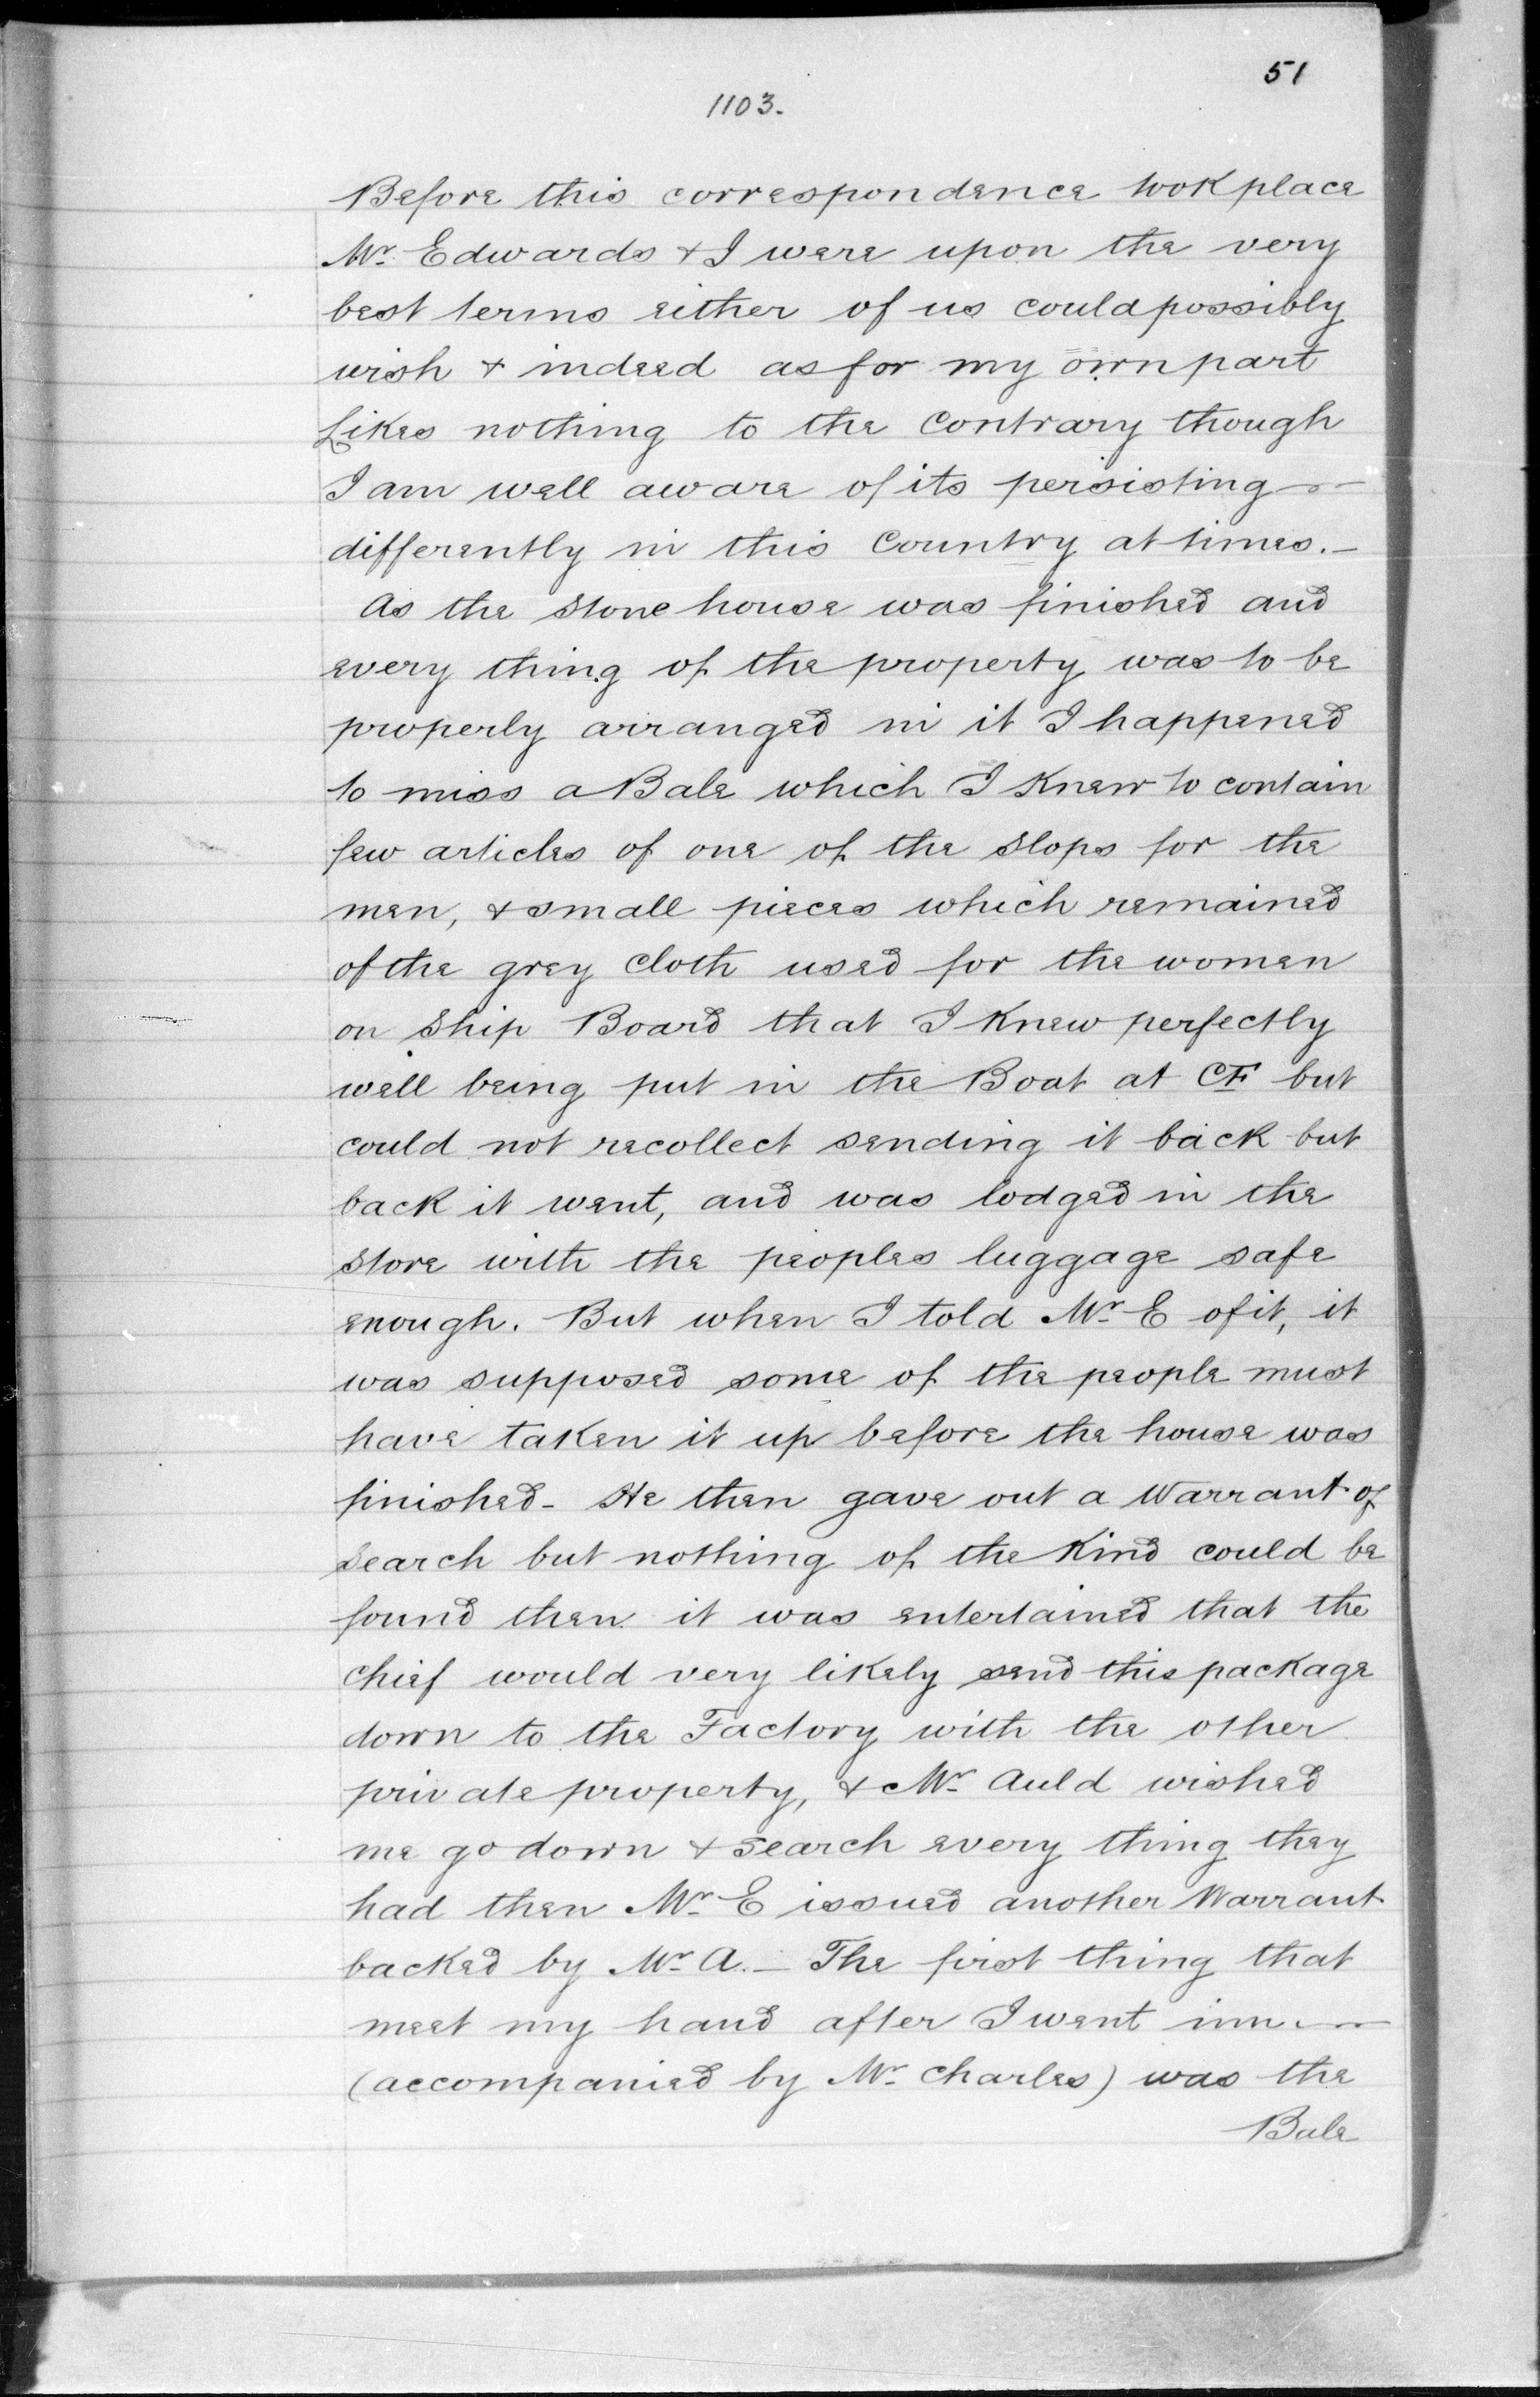 51
1103.
Before this correspondence took place
Mr. Edwards & I were upon the very
best terms either of us could possibly
wish & indeed as for my own part
Likes nothing to the Contrary though
I am well aware of its persisting
differently in this Country at times.—
As the Stone house was finished and
every thing of the property was to be
properly arranged in it I happened
to miss a Bale which I Knew to contain
few articles of one of the Slops for the
men, & small pieces which remained
of the grey Cloth used for the women
on Ship Board that I Knew perfectly
well being put in the Boat at CF but
could not recollect sending it back but
back it went, and was lodged in the
Store with the peoples luggage safe
enough. But when I told Mr E of it, it
was supposed some of the people must
have taken it up before the house was
finished - He then gave out a Warrant of
Search but nothing of the Kind could be
found then it was entertained that the
Chief would very likely send this package
down to the Factory with the other
private property, & Mr Auld wished
me go down & search every thing they
had then Mr E issued another Warrant
backed by Mr A. — The first thing that
meet my hand after I went inn.—
(accompanied by Mr Charles) was the
Bale